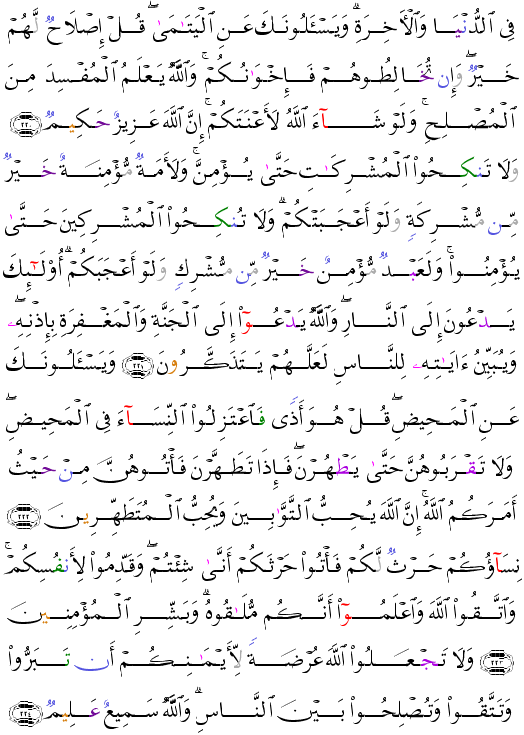 فِى ٱلدُّنْيَا وَٱلْأَخِرَةِ ۗ وَيَسْـَٔلُونَكَ عَنِ ٱلْيَتَـٰمَىٰ ۖ قُلْ إِصْلَاحٌ لَّهُمْ
خَيْرٌ ۖ وَإِن تُخَالِطُوهُمْ فَإِخْوَٰنُكُمْ ۚ وَٱللَّهُ يَعْلَمُ ٱلْمُفْسِدَ مِنَ
ٱلْمُصْلِحِ ۚ وَلَوْ شَآءَ ٱللَّهُ لَأَعْنَتَكُمْ ۚ إِنَّ ٱللَّهَ عَزِيزٌ حَكِيمٌ ٢٢٠
وَلَا تَنكِحُوا۟ ٱلْمُشْرِكَـٰتِ حَتَّىٰ يُؤْمِنَّ ۚ وَلَأَمَةٌ مُّؤْمِنَةٌ خَيْرٌ
مِّن مُّشْرِكَةٍ وَلَوْ أَعْجَبَتْكُمْ ۗ وَلَا تُنكِحُوا۟ ٱلْمُشْرِكِينَ حَتَّىٰ
يُؤْمِنُوا۟ ۚ وَلَعَبْدٌ مُّؤْمِنٌ خَيْرٌ مِّن مُّشْرِكٍ وَلَوْ أَعْجَبَكُمْ ۗ أُو۟لَـٰٓئِكَ
يَدْعُونَ إِلَى ٱلنَّارِ ۖ وَٱللَّهُ يَدْعُوٓا۟ إِلَى ٱلْجَنَّةِ وَٱلْمَغْفِرَةِ بِإِذْنِهِۦ ۖ
وَيُبَيِّنُ ءَايَـٰتِهِۦ لِلنَّاسِ لَعَلَّهُمْ يَتَذَكَّرُونَ ٢٢١ وَيَسْـَٔلُونَكَ
عَنِ ٱلْمَحِيضِ ۖ قُلْ هُوَ أَذًى فَٱعْتَزِلُوا۟ ٱلنِّسَآءَ فِى ٱلْمَحِيضِ ۖ
وَلَا تَقْرَبُوهُنَّ حَتَّىٰ يَطْهُرْنَ ۖ فَإِذَا تَطَهَّرْنَ فَأْتُوهُنَّ مِنْ حَيْثُ
أَمَرَكُمُ ٱللَّهُ ۚ إِنَّ ٱللَّهَ يُحِبُّ ٱلتَّوَّٰبِينَ وَيُحِبُّ ٱلْمُتَطَهِّرِينَ ٢٢٢
نِسَآؤُكُمْ حَرْثٌ لَّكُمْ فَأْتُوا۟ حَرْثَكُمْ أَنَّىٰ شِئْتُمْ ۖ وَقَدِّمُوا۟ لِأَنفُسِكُمْ ۚ
وَٱتَّقُوا۟ ٱللَّهَ وَٱعْلَمُوٓا۟ أَنَّكُم مُّلَـٰقُوهُ ۗ وَبَشِّرِ ٱلْمُؤْمِنِينَ
٢٢٣ وَلَا تَجْعَلُوا۟ ٱللَّهَ عُرْضَةً لِّأَيْمَـٰنِكُمْ أَن تَبَرُّوا۟
وَتَتَّقُوا۟ وَتُصْلِحُوا۟ بَيْنَ ٱلنَّاسِ ۗ وَٱللَّهُ سَمِيعٌ عَلِيمٌ ٢٢٤